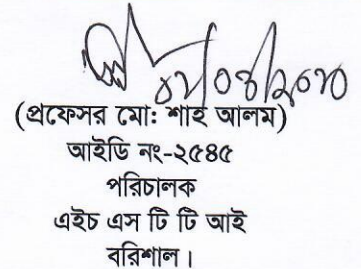 (প্রফেসর মো: শাহ আলম)
আইডি নং-২৫৪৫
পরিচালক
এইচ এস টি টি আই
বরিশাল।